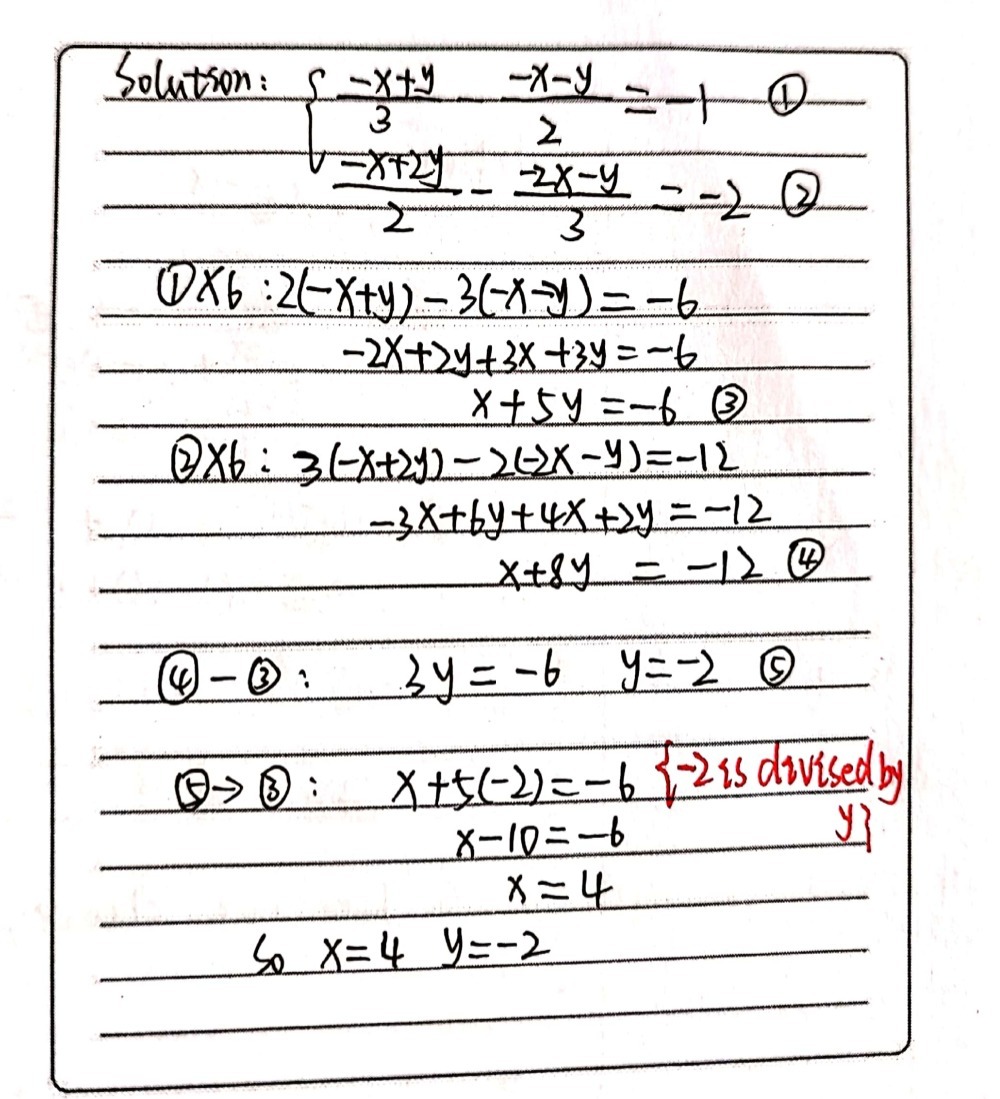 Solutson: { (-x+y)/3 - (-x-y)/2 = -1 ①
(-x+2y)/2 - (-2x-y)/3 = -2 ②
①×6 : 2(-x+y) - 3(-x-y) = -6
-2x+2y+3x+3y=-6
x+5y=-6 ③
②×6 : 3(-x+2y) - 2(-2x-y)=-12
-3x+6y+4x+2y=-12
x+8y = -12 ④
④-③ : 3y=-6 y=-2 ⑤
⑤→③ : x+5(-2)=-6 {-2 is divised by
y}
x-10=-6
x=4
So x=4 y=-2